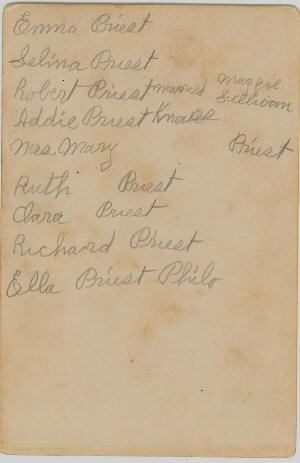 Emma Priest
Selina Priest
Robert Priest married Maggie Sullivan
Addie Priest
Mrs. Mary Priest
Ruth Priest
Clara Priest
Richard Priest
Ella Priest Philo